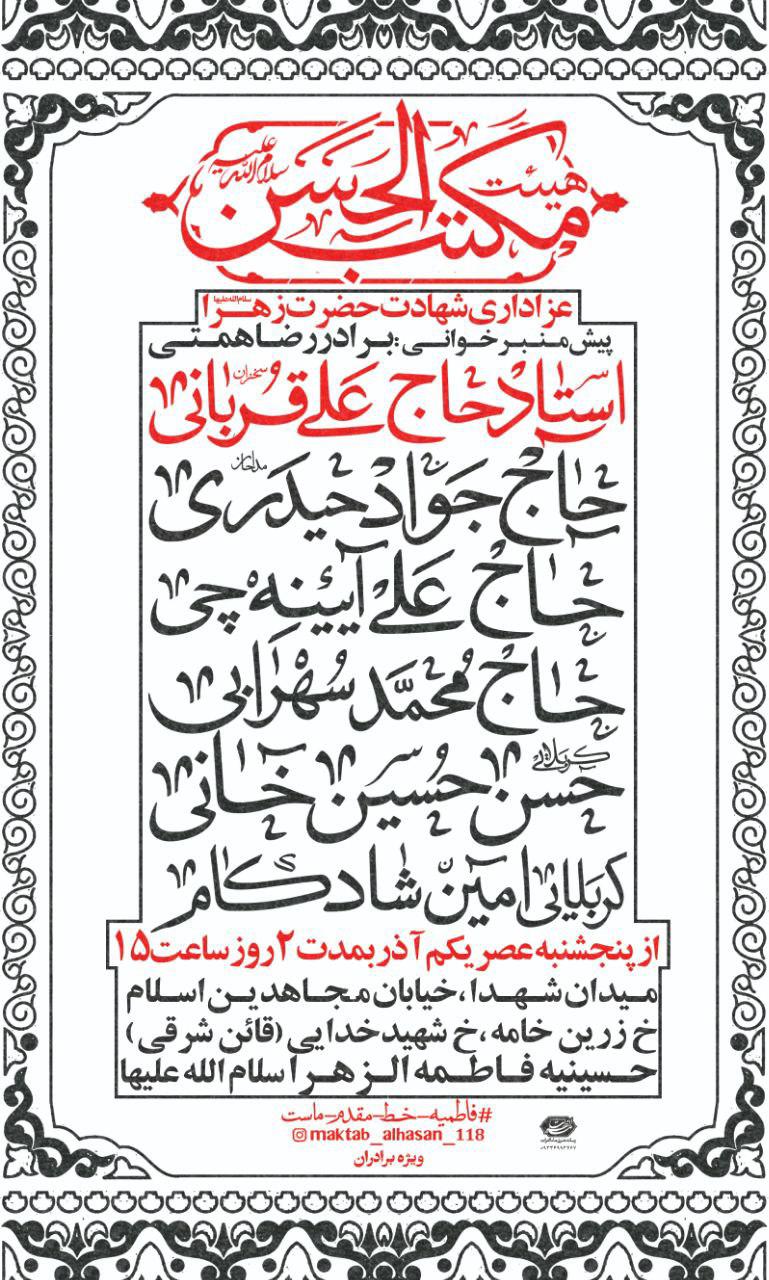 هیئت
مکتب الحسن
سلام الله علیه
عزاداری شهادت حضرت زهرا سلام الله علیها
پیش منبر خوانی : برادر رضا همتی
استاد حاج علی قربانی
سخنران
حاج جواد حیدری
مداحان
حاج علی آیینه چی
حاج محمد سهرابی
کربلایی
حسن حسین خانی
کربلایی امین شادکام
از پنجشنبه عصر یکم آذر بمدت ۲ روز ساعت ۱۵
میدان شهدا ، خیابان مجاهدین اسلام
خ زرین خامه ، خ شهید خدایی (قائن شرقی)
حسینیه فاطمه الزهرا سلام الله علیها
#فاطمیه_خط_مقدم_ماست
maktab_alhasan_118
ویژه برادران